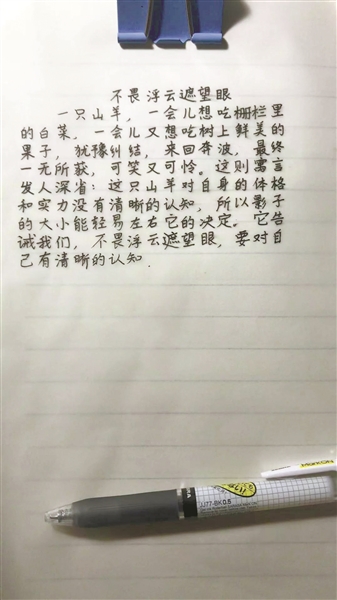 不畏浮云遮望眼
一只山羊，一会儿想吃栅栏里
的白菜，一会儿又想吃树上鲜美的
果子，犹豫纠结，来回奔波，最终
一无所获，可笑又可怜。这则寓言
发人深省：这只山羊对自身的体格
和实力没有清晰的认知，所以影子
的大小能轻易左右它的决定。它告
诫我们，不畏浮云遮望眼，要对自
己有清晰的认知.
JJ77-BK0.5